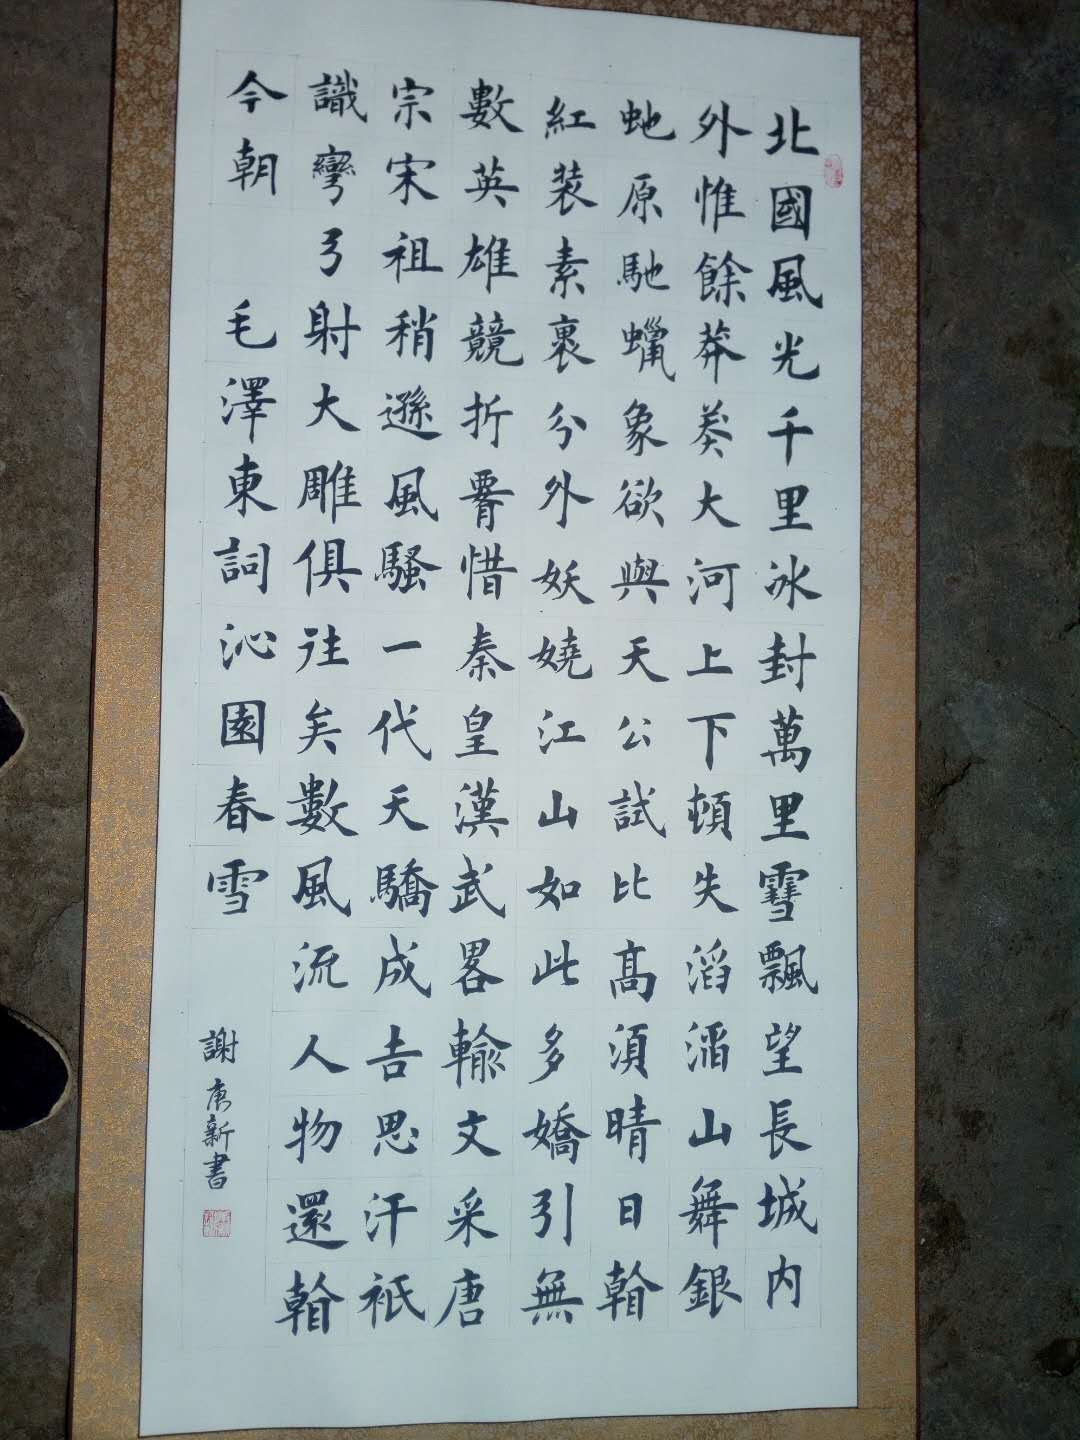 北國風光千里冰封萬里雪飄望長城内
外惟餘莽莽大河上下頓失滔滔山舞銀
虵原馳蠟象欲與天公試比高須晴日看
紅裝素裹分外妖嬈江山如此多嬌引無
數英雄競折腰惜秦皇漢武畧輸文采唐
宗宋祖稍遜風騷一代天驕成吉思汗衹
識彎弓射大雕俱往矣數風流人物還看
今朝 毛澤東詞沁園春雪
謝庚新書